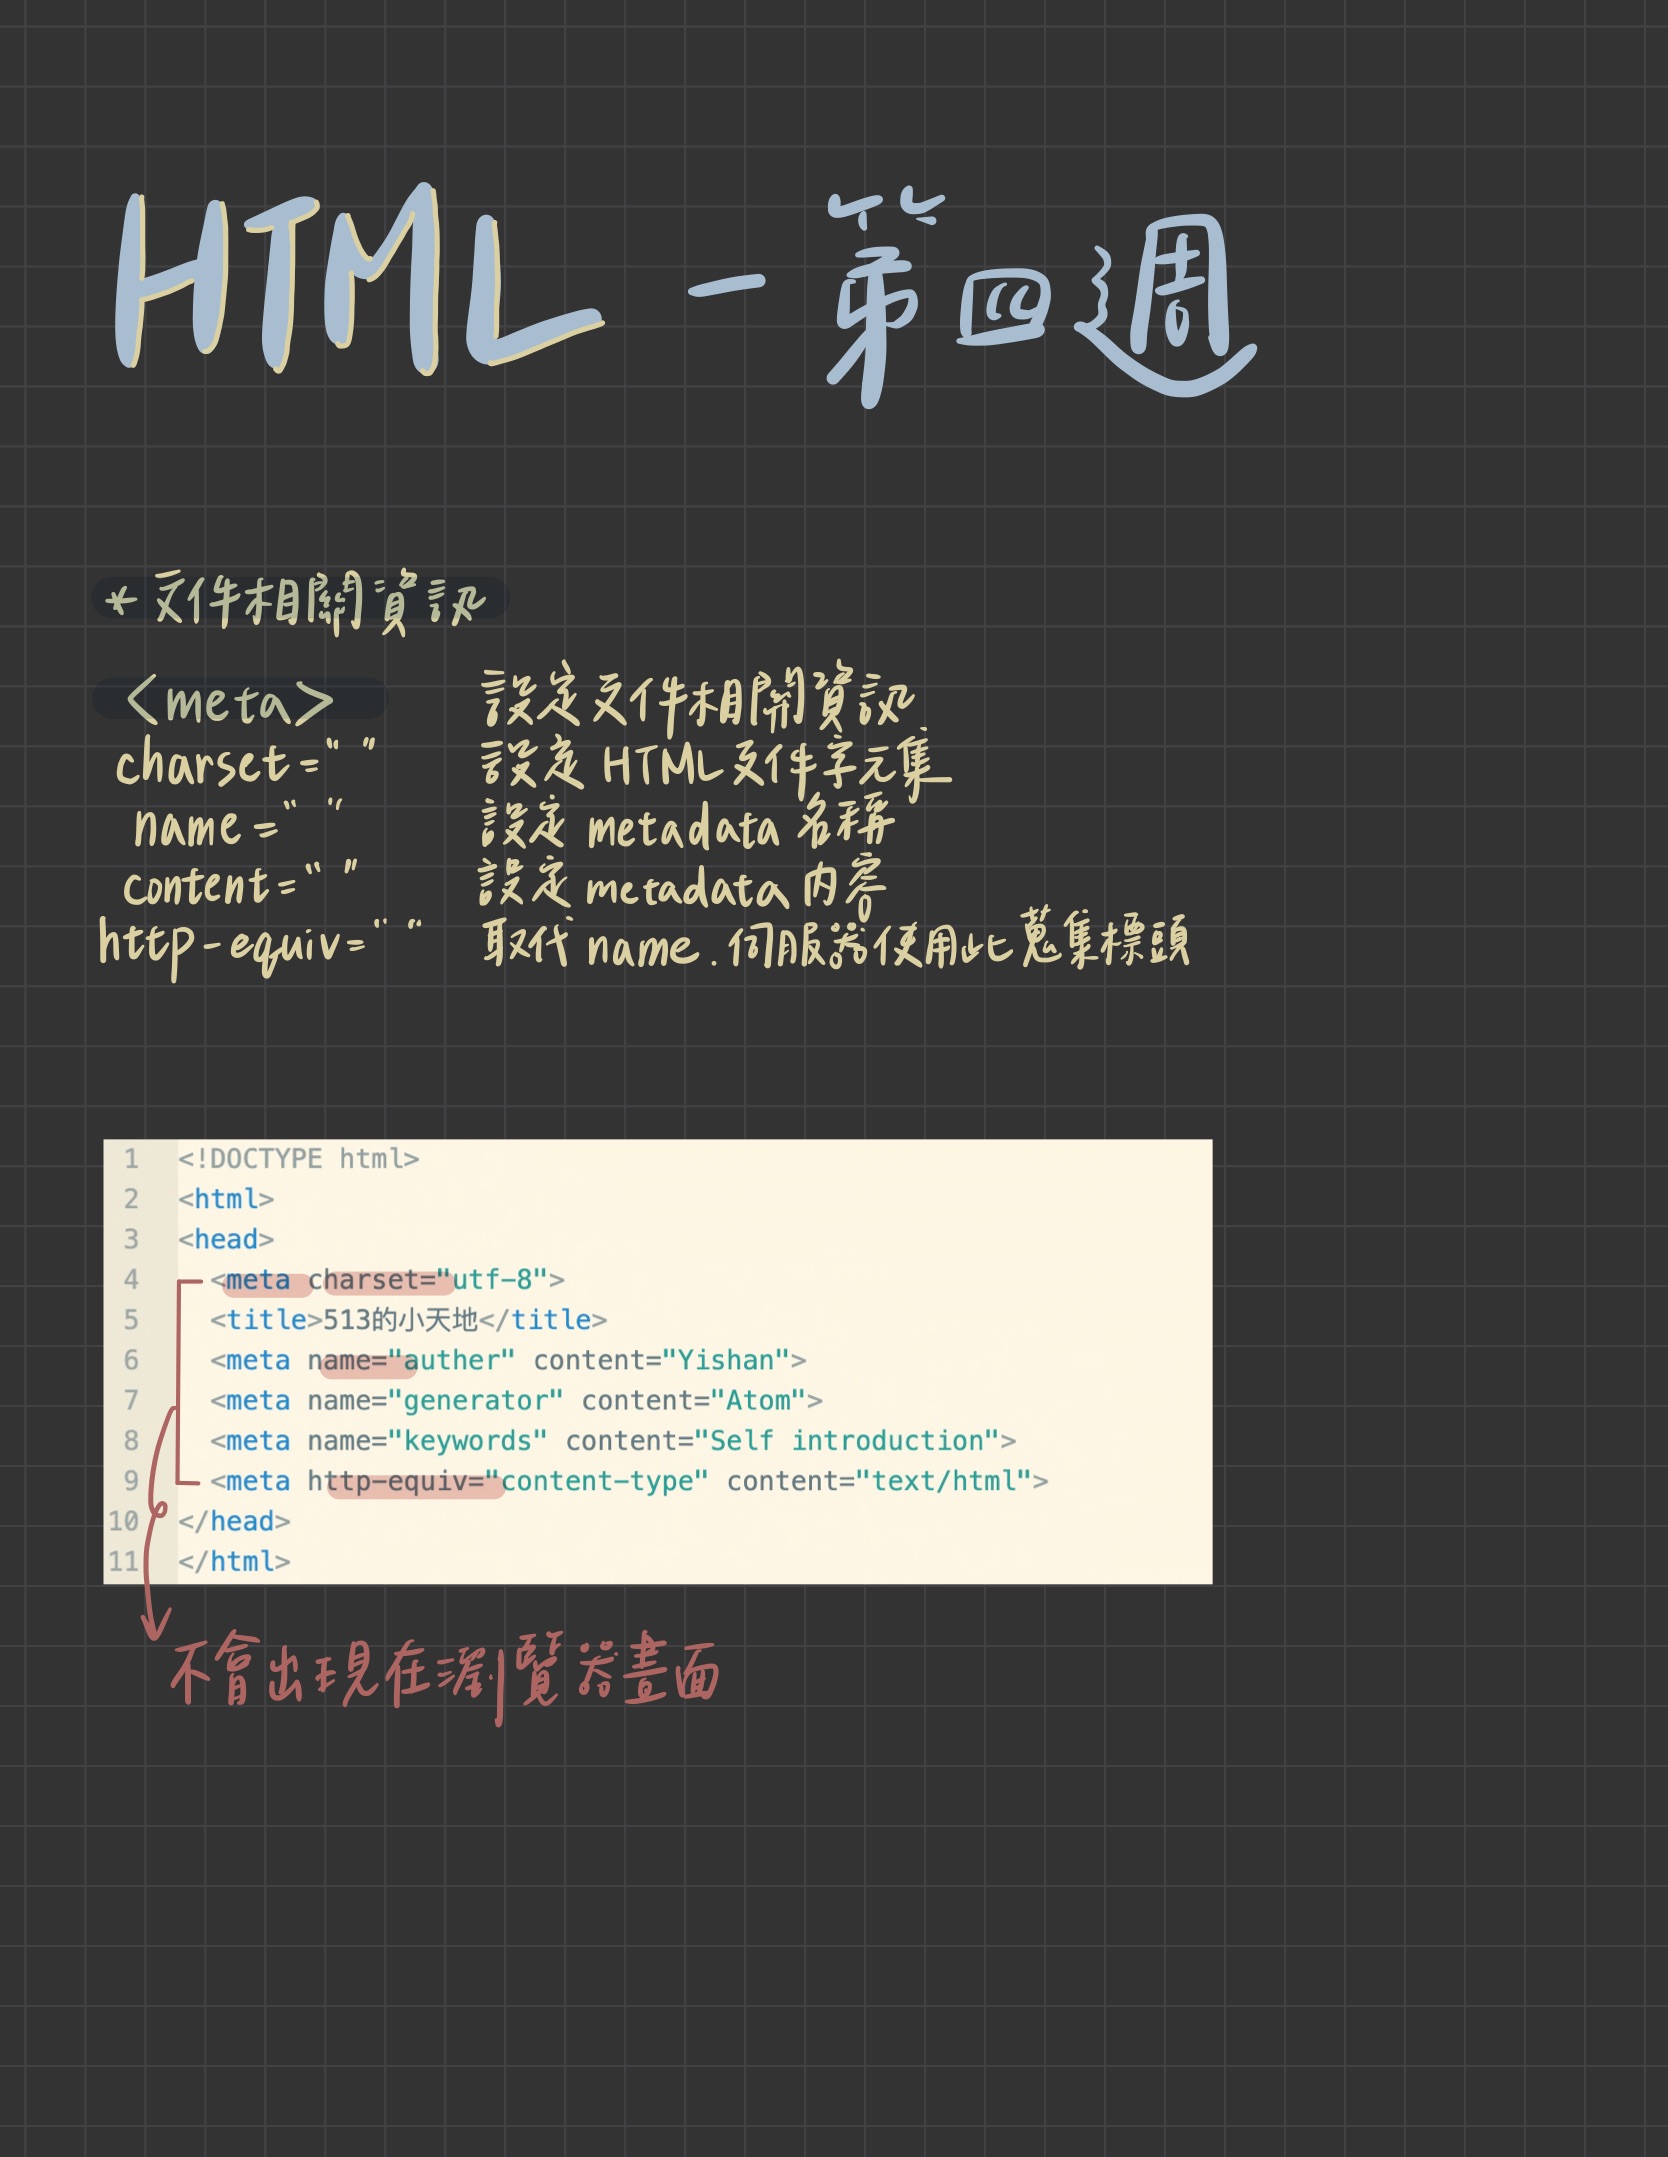 HTML - 第四週
* 文件相關資訊
<meta> 設定文件相關資訊
charset=" " 設定 HTML 文件字元集
name=" " 設定 metadata 名稱
content=" " 設定 metadata 內容
http-equiv=" " 取代 name. 伺服器使用此蒐集標頭
1 <!DOCTYPE html>
2 <html>
3 <head>
4 <meta charset="utf-8">
5 <title>513的小天地</title>
6 <meta name="auther" content="Yishan">
7 <meta name="generator" content="Atom">
8 <meta name="keywords" content="Self introduction">
9 <meta http-equiv="content-type" content="text/html">
10 </head>
11 </html>
不會出現在瀏覽器畫面